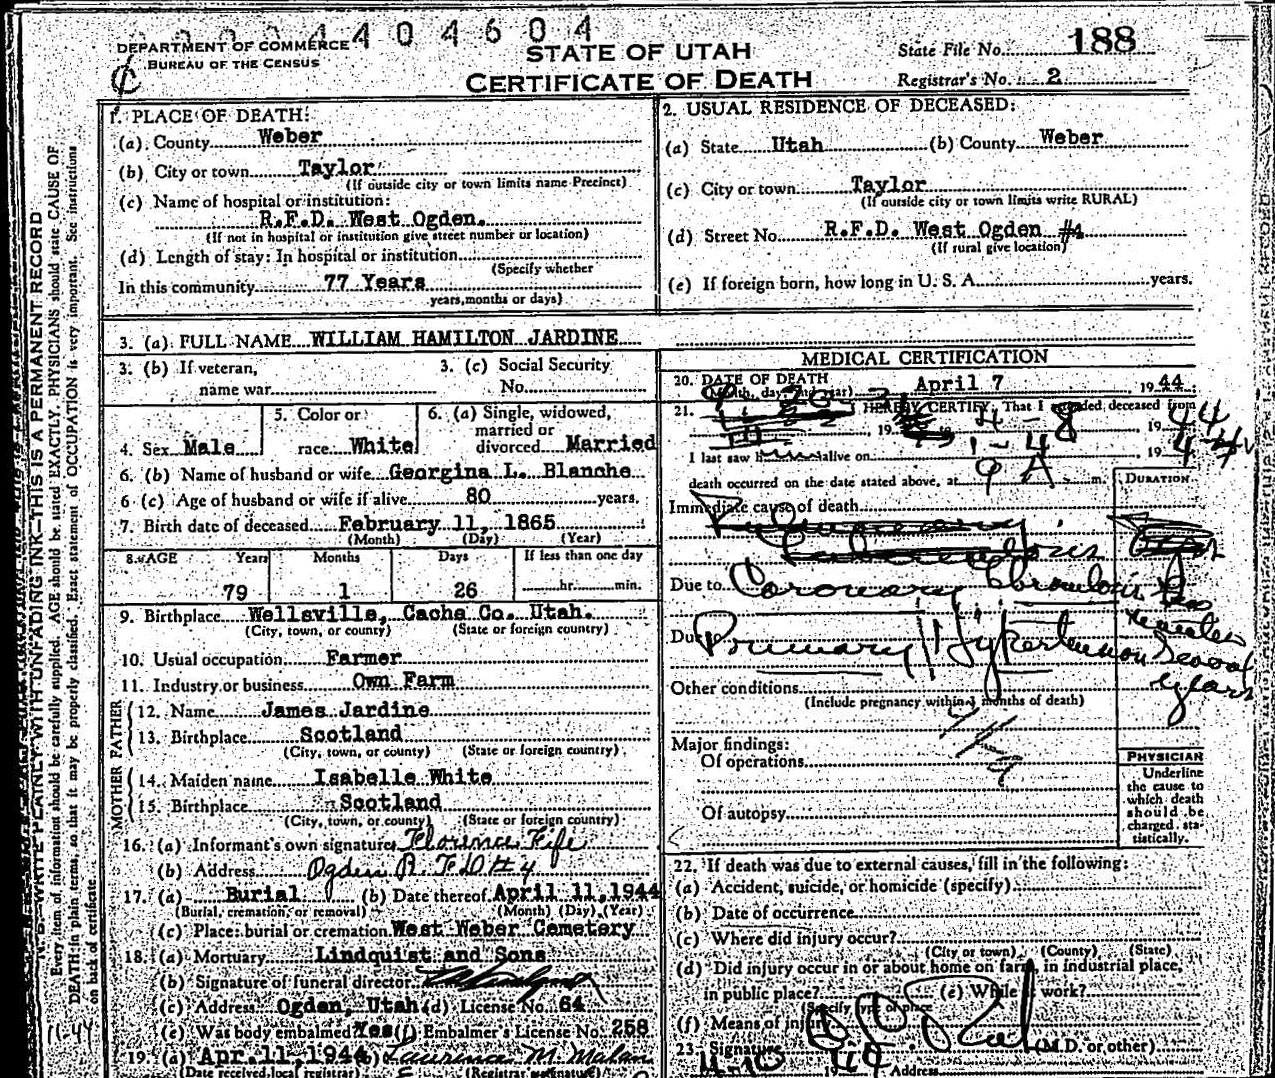 404604
DEPARTMENT OF COMMERCE
BUREAU OF THE CENSUS
STATE OF UTAH
CERTIFICATE OF DEATH
State File No. 188
Registrar's No. 2
1. PLACE OF DEATH:
(a) County Weber
(b) City or town Taylor
(If outside city or town limits name Precinct)
(c) Name of hospital or institution:
R.F.D. West Ogden.
(If not in hospital or institution give street number or location)
(d) Length of stay: In hospital or institution
(Specify whether
In this community 77 Years
years, months or days)
2. USUAL RESIDENCE OF DECEASED:
(a) State Utah (b) County Weber
(c) City or town Taylor
(If outside city or town limits write RURAL)
(d) Street No. R.F.D. West Ogden #4
(If rural give location)
(e) If foreign born, how long in U. S. A. years.
3. (a) FULL NAME WILLIAM HAMILTON JARDINE
3. (b) If veteran,
name war
3. (c) Social Security
No.
4. Sex Male
5. Color or
race White
6. (a) Single, widowed,
married or
divorced Married
6. (b) Name of husband or wife Georgina L. Blanche
6 (c) Age of husband or wife if alive 80 years.
7. Birth date of deceased February 11, 1865
(Month) (Day) (Year)
8. AGE Years Months Days If less than one day
79 1 26 hr. min.
9. Birthplace Wellsville, Cache Co. Utah.
(City, town, or county) (State or foreign country)
10. Usual occupation Farmer
11. Industry or business Own Farm
FATHER
12. Name James Jardine
13. Birthplace Scotland
(City, town, or county) (State or foreign country)
MOTHER
14. Maiden name Isabelle White
15. Birthplace Scotland
(City, town, or county) (State or foreign country)
16. (a) Informant's own signature Florence Fife
(b) Address Ogden R.F.D #4
17. (a) Burial (b) Date thereof April 11, 1944
(Burial, cremation, or removal) (Month) (Day) (Year)
(c) Place: burial or cremation West Weber Cemetery
18. (a) Mortuary Lindquist and Sons
(b) Signature of funeral director
(c) Address Ogden, Utah (d) License No. 64
(e) Was body embalmed Yes (f) Embalmer's License No. 258
19. (a) Apr. 11, 1944 Laurence M. Malan
(Date received local registrar) (Registrar signature)
MEDICAL CERTIFICATION
20. DATE OF DEATH
(Month, day, and year) April 7 1944
21. I HEREBY CERTIFY, That I attended deceased from
4-8 1944
I last saw h alive on 1-4 1944
death occurred on the date stated above, at 9 A m.
DURATION
Immediate cause of death
Due to Coronary Thrombosis
minutes
Due Primary Hypertension Several
years
Other conditions
(Include pregnancy within 3 months of death)
Major findings:
Of operations
Of autopsy
PHYSICIAN
Underline
the cause to
which death
should be
charged sta-
tistically.
22. If death was due to external causes, fill in the following:
(a) Accident, suicide, or homicide (specify)
(b) Date of occurrence
(c) Where did injury occur?
(City or town) (County) (State)
(d) Did injury occur in or about home on farm, in industrial place,
in public place? (e) While at work?
(Specify type of place)
(f) Means of injury
23. Signature (M.D. or other)
Address
N. B.—WRITE PLAINLY WITH UNFADING INK—THIS IS A PERMANENT RECORD
Every item of information should be carefully supplied. AGE should be stated EXACTLY. PHYSICIANS should state CAUSE OF
DEATH in plain terms, so that it may be properly classified. Exact statement of OCCUPATION is very important. See instructions
on back of certificate.
11-44